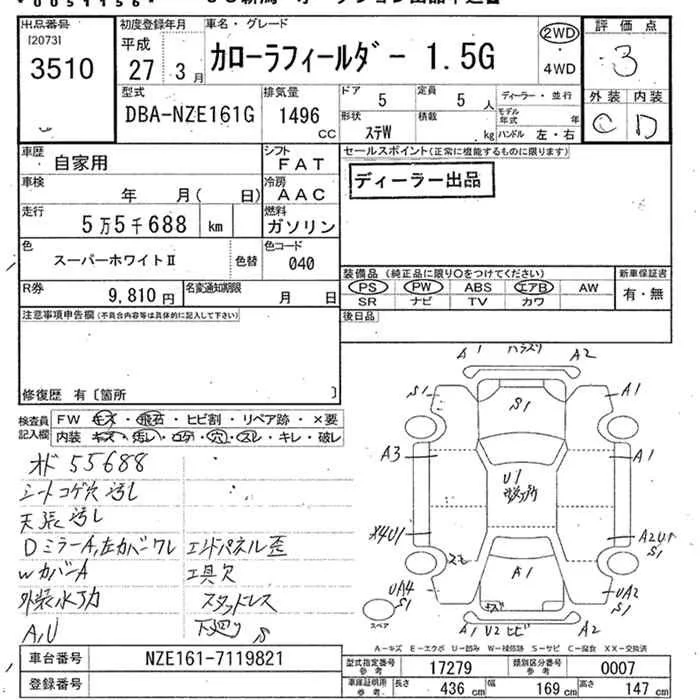 *0051156*
出品番号
[2073]
3510
初度登録年月
平成
27 3月
車名・グレード
カローラフィールダー 1.5G
2WD
・
4WD
評価点
3
外装 内装
C D
型式
DBA-NZE161G
排気量
1496
cc
ドア
5
定員
5 人
形状
ステW
積載
kg
ディーラー・並行
モデル年式 年
ハンドル 左・右
車歴
自家用
シフト
FAT
車検
年 月( 日)
冷房
AAC
走行
5万5千688 km
燃料
ガソリン
色
スーパーホワイトⅡ
色替
色コード
040
R券
9,810 円
名変通知期限
月 日
セールスポイント(正常に機能するものに限ります)
ディーラー出品
装備品 (純正品に限り○をつけてください)
PS PW ABS エアB AW
SR ナビ TV カワ
新車保証書
有・無
後日品
注意事項申告欄 (不具合内容等は具体的に記入して下さい)
修復歴 有〔箇所 〕
検査員
記入欄
FW キズ・飛石・ヒビ割・リペア跡・×要
内装 キズ・汚れ・コゲ・穴・スレ・キレ・破レ
オド 55688
シートコゲ穴 汚レ
天張 汚レ
DミラーA,左カバーワレ
WカバーA
外装水アカ
A,U
エンドパネル歪
工具欠
スタッドレス
下廻りS
A1 A2
S1 S1 A1
A3 U1 A1
X4U1 A2U1
S1
A1
UA4
S1
UA2
S1
スペア
A1 U2 ヒビ A2
A-キズ E-エクボ U-凹み W-補修跡 S-サビ C-腐食 XX-交換済
車台番号
NZE161-7119821
登録番号
型式指定番号
参考
17279
類別区分番号
参考
0007
車庫証明用
参考
長さ 436 cm
幅 169 cm
高さ 147 cm